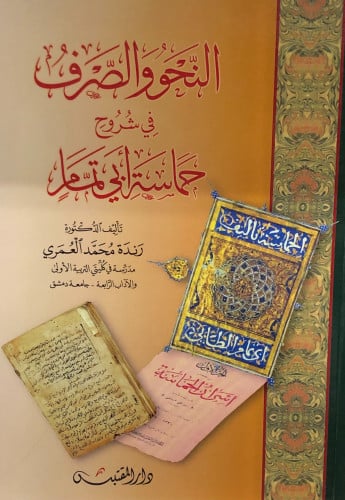 النَّحْوُ وَالصَّرْفُ
فِي شُرُوحِ
حَمَاسَةِ أَبِي تَمَّامٍ
تأليف الدكتورة
رندة محمَّد العمري
مدرّسة في كليّتي التربية الأولى
والآداب الرابعة - جامعة دمشق
الحماسة تأليف
ابي تمام الطائي
دار المقتبس